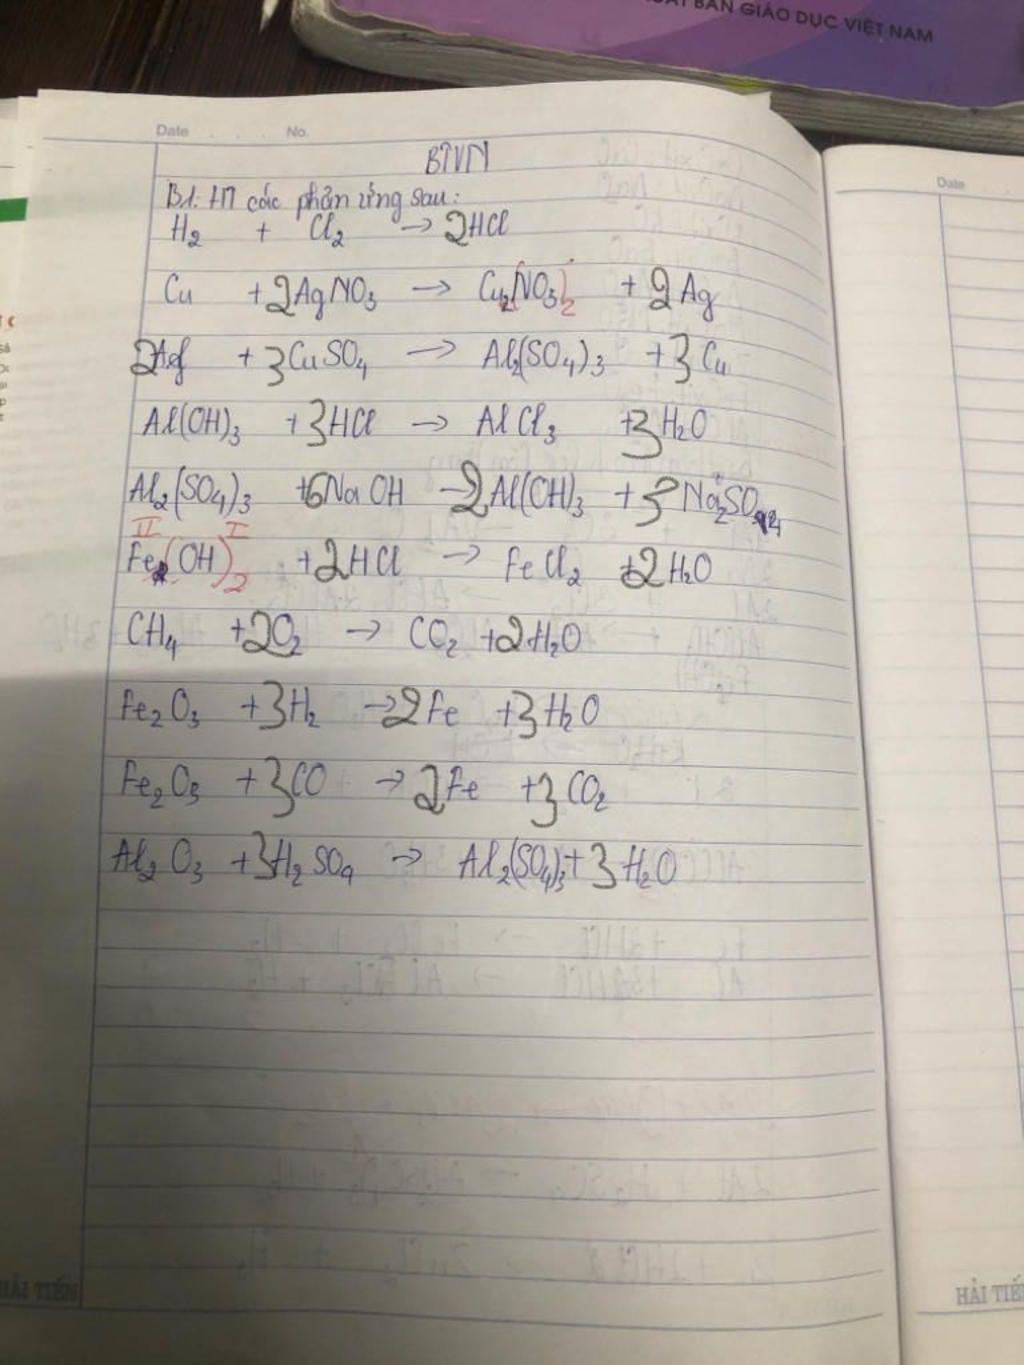 BẢN GIÁO DỤC VIỆT NAM
Date No.
BTVN
B1: HT các phản ứng sau:
H2 + Cl2 → 2HCl
Cu + 2AgNO3 → Cu2(NO3)2 + 2Ag
2Al + 3CuSO4 → Al2(SO4)3 + 3Cu
Al(OH)3 + 3HCl → AlCl3 + 3H2O
Al2(SO4)3 + 6NaOH → 2Al(OH)3 + 3Na2SO4
II I
Fe(OH)2 + 2HCl → FeCl2 + 2H2O
CH4 + 2O2 → CO2 + 2H2O
Fe2O3 + 3H2 → 2Fe + 3H2O
Fe2O3 + 3CO → 2Fe + 3CO2
Al2O3 + 3H2SO4 → Al2(SO4)3 + 3H2O
HẢI TIẾN
Date
HẢI TIẾ